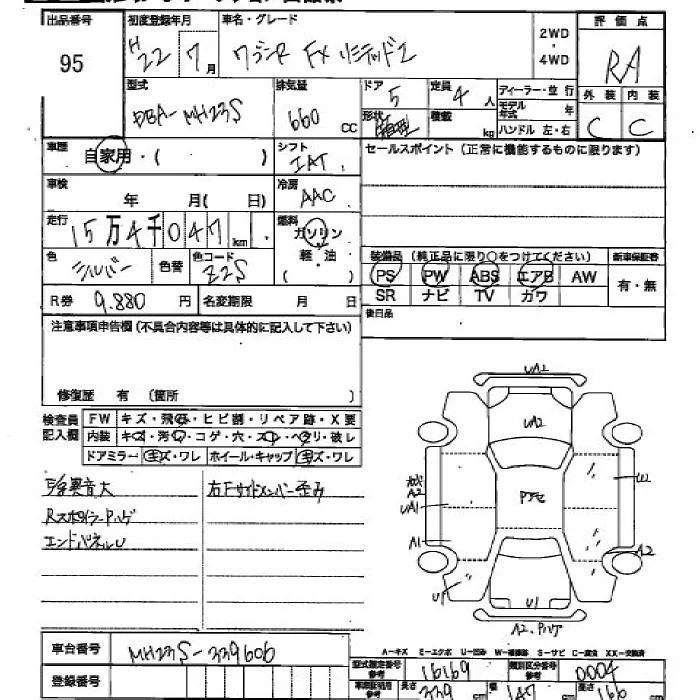 出品番号 初度登録年月 車名・グレード 評価点
95 H22 7月 ワゴンR FXリミテッドⅡ 2WD・4WD RA
型式 排気量 ドア 定員 ディーラー・並行 外装 内装
DBA-MH23S 660 CC 5 4人 モデル年式 年 C C
形状 箱型 積載 kg ハンドル 左・右
車歴 自家用・( ) シフト IAT セールスポイント(正常に機能するものに限ります)
車検 年 月(日) 冷房 AAC
走行 15万4千047km 燃料 ガソリン
軽油
( )
色 シルバー 色替 色コード Z2S
装備品(純正品に限り○をつけてください) 新車保証書
PS PW ABS エアB AW 有・無
SR ナビ TV カワ
R券 9.880円 名変期限 月 日
後日品
注意事項申告欄(不具合内容等は具体的に記入して下さい)
修復歴 有(箇所 )
検査員記入欄 FW キズ・飛石・ヒビ割・リペア跡・X要
内装 キズ・汚れ・コゲ・穴・スレ・ヘタリ・破レ
ドアミラー キズ・ワレ ホイール・キャップ キズ・ワレ
異音大 右Fサイドメンバー歪み
RスポイラーPハゲ
エンドパネルU
UA2
UA2
Pアセ
A2
UA1
A1
U2
A2
U1
U1
A2.Pハゲ
A-キズ E-エクボ U-凹み W-補修跡 S-サビ C-腐食 XX-交換済
車台番号 MH23S-339606
型式指定番号 参考 16169 類別区分番号 参考 0004
登録番号
長さ 339 147 高さ 166